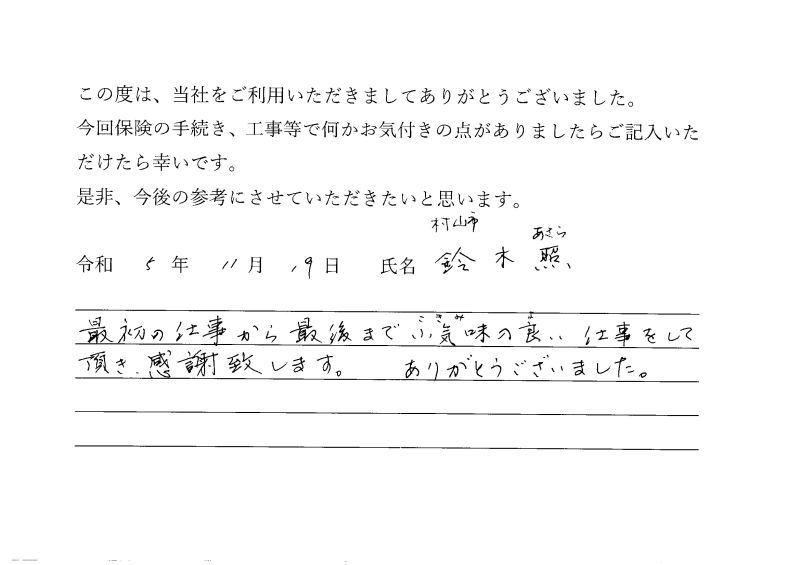 この度は、当社をご利用いただきましてありがとうございました。
今回保険の手続き、工事等で何かお気付きの点がありましたらご記入いた
だけたら幸いです。
是非、今後の参考にさせていただきたいと思います。
村山市
令和 5 年 11 月 19 日 氏名 鈴木 照
最初の仕事から最後まで 気味の良い 仕事をして
頂き、感謝致します。 ありがとうございました。